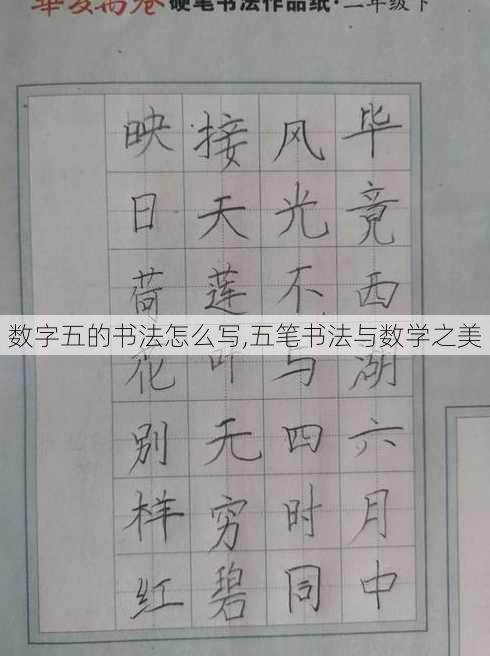 華夏萬卷 硬笔书法作品纸·二年级下
毕竟西湖六月中
风光不与四时同
接天莲叶无穷碧
映日荷花别样红
数字五的书法怎么写,五笔书法与数学之美